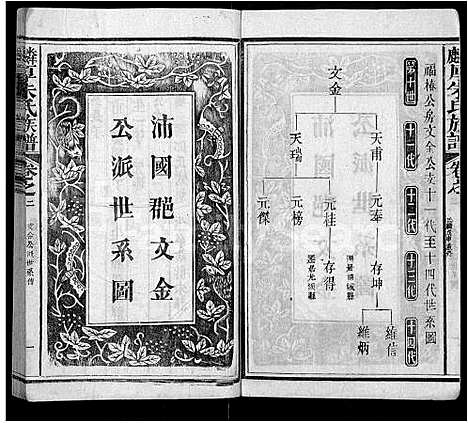 麟厚朱氏族譜
卷之
福椿公房文金公支十一代至十四代世系圖
第十世
十一代
十二代
十三代
十四代
文金
天甫
天瑞
元奉
元桂
元榜
元傑
存坤
存得
維信
維炳
沛國郡文金
公派世系圖
朱氏族譜
卷之二
文金公派世系圖
一